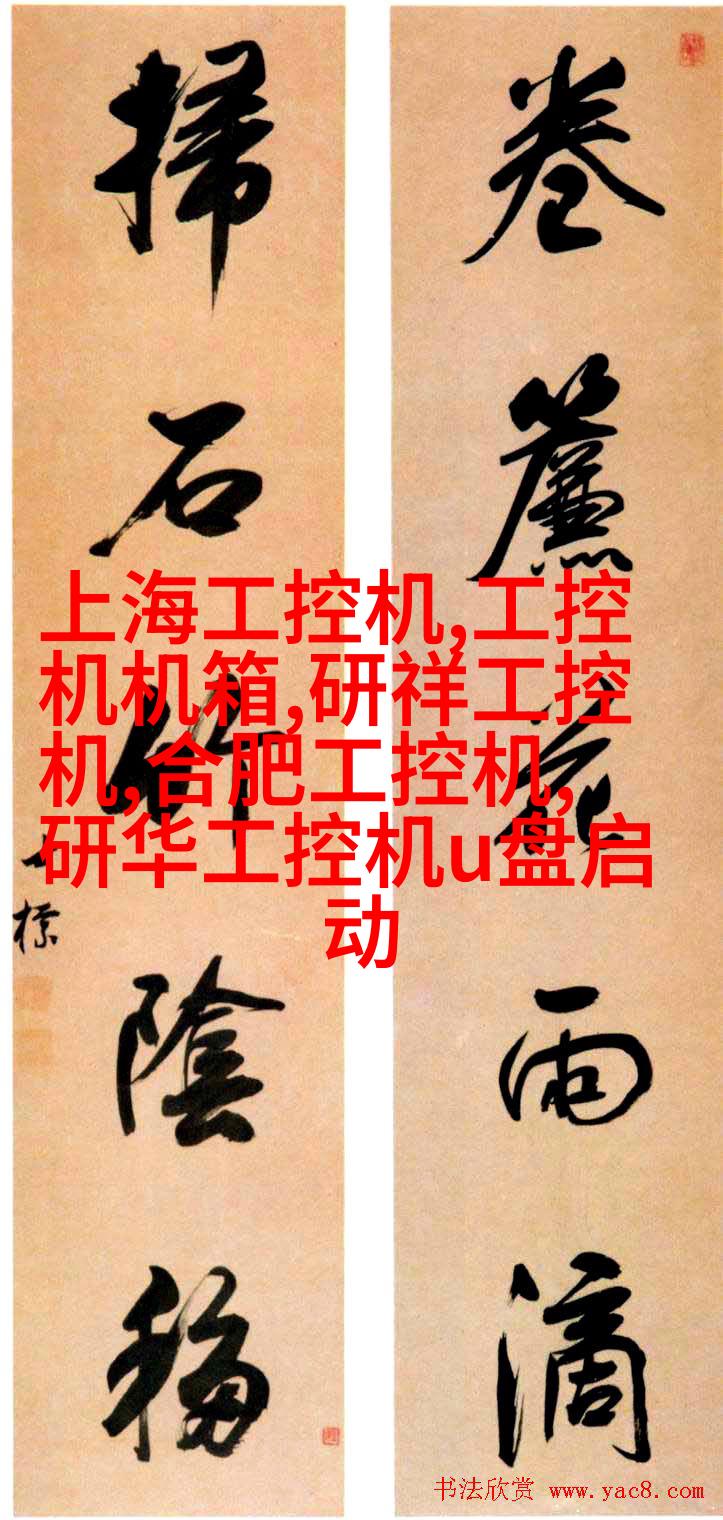 卷簾花雨滴
掃石竹陰移
標
上海工控机,工控
机机箱,研祥工控
机,合肥工控机,
研华工控机u盘启
动
书法欣赏 www.yac8.com